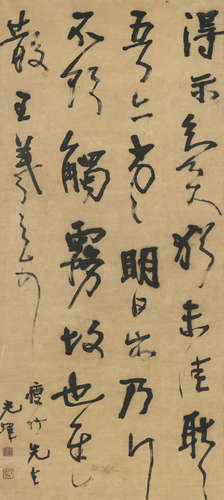 得示知足下猶未佳耿〻
吾亦劣〻明日出乃行
不欲觸霧故也遲
散王羲之頓首
瘦竹先生